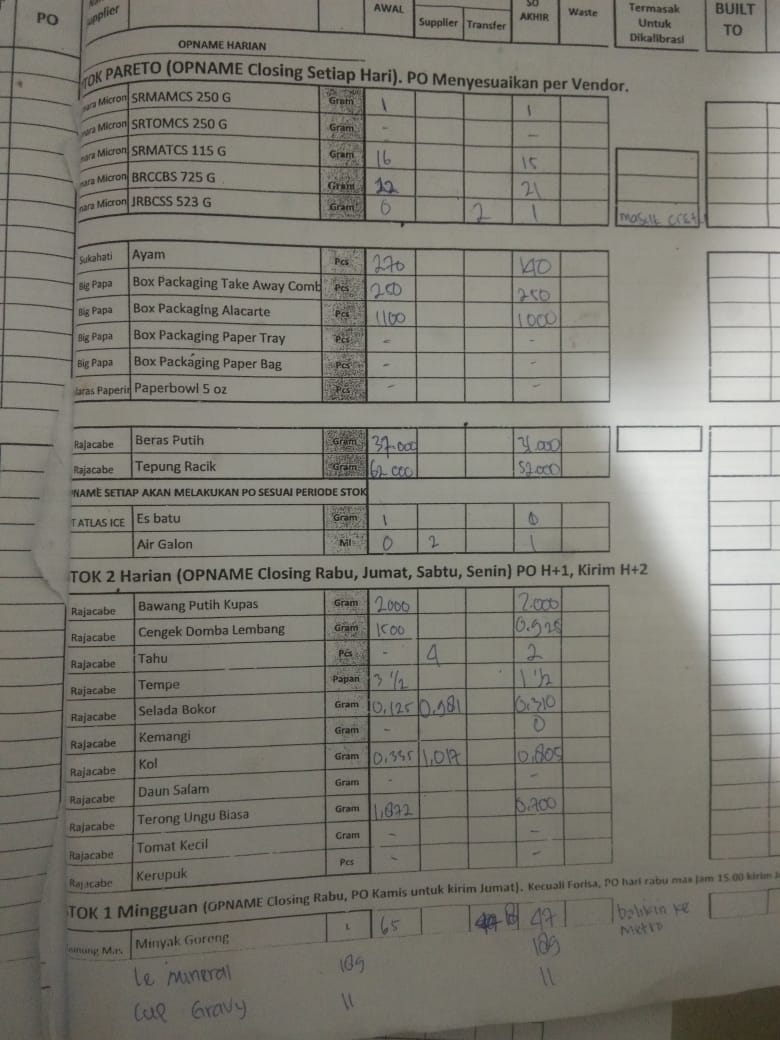 PO
upplier
AWAL
Supplier
Transfer
SO
AKHIR
Waste
Termasak
Untuk
Dikalibrasi
BUILT
TO
OPNAME HARIAN
TOK PARETO (OPNAME Closing Setiap Hari). PO Menyesuaikan per Vendor.
nara Micron SRMAMCS 250 G Gram 1 1
nara Micron SRTOMCS 250 G Gram - -
nara Micron SRMATCS 115 G Gram 16 15
nara Micron BRCCBS 725 G Gram 22 21
nara Micron JRBCSS 523 G Gram 0 2 1
Sukahati Ayam Pcs 270 140
Big Papa Box Packaging Take Away Comb Pcs 250
Big Papa Box Packaging Alacarte Pcs 1100 1000
Big Papa Box Packaging Paper Tray Pcs - -
Big Papa Box Packaging Paper Bag Pcs - -
laras Paperin Paperbowl 5 oz Pcs - -
Rajacabe Beras Putih Gram 37.000
Rajacabe Tepung Racik Gram 62 000 52.000
NAME SETIAP AKAN MELAKUKAN PO SESUAI PERIODE STOK
T ATLAS ICE Es batu Gram 1 0
Air Galon Ml 0 2 1
TOK 2 Harian (OPNAME Closing Rabu, Jumat, Sabtu, Senin) PO H+1, Kirim H+2
Rajacabe Bawang Putih Kupas Gram 2000 2.000
Rajacabe Cengek Domba Lembang Gram 1500 0.925
Rajacabe Tahu Pcs - 4 2
Rajacabe Tempe Papan 3 1/2 1 1/2
Rajacabe Selada Bokor Gram 0,125 0,981 0,310
Rajacabe Kemangi Gram - 0
Rajacabe Kol Gram 1,017 0,805
Rajacabe Daun Salam Gram - -
Rajacabe Terong Ungu Biasa Gram 1,872 0.700
Rajacabe Tomat Kecil Gram - -
Rajacabe Kerupuk Pcs - -
TOK 1 Mingguan (OPNAME Closing Rabu, PO Kamis untuk kirim Jumat). Kecuali Forisa, PO hari rabu max jam 15.00 kirim
Minyak Goreng L 65 47 balikin ke
metro
le mineral 189 189
cup Gravy 11 11